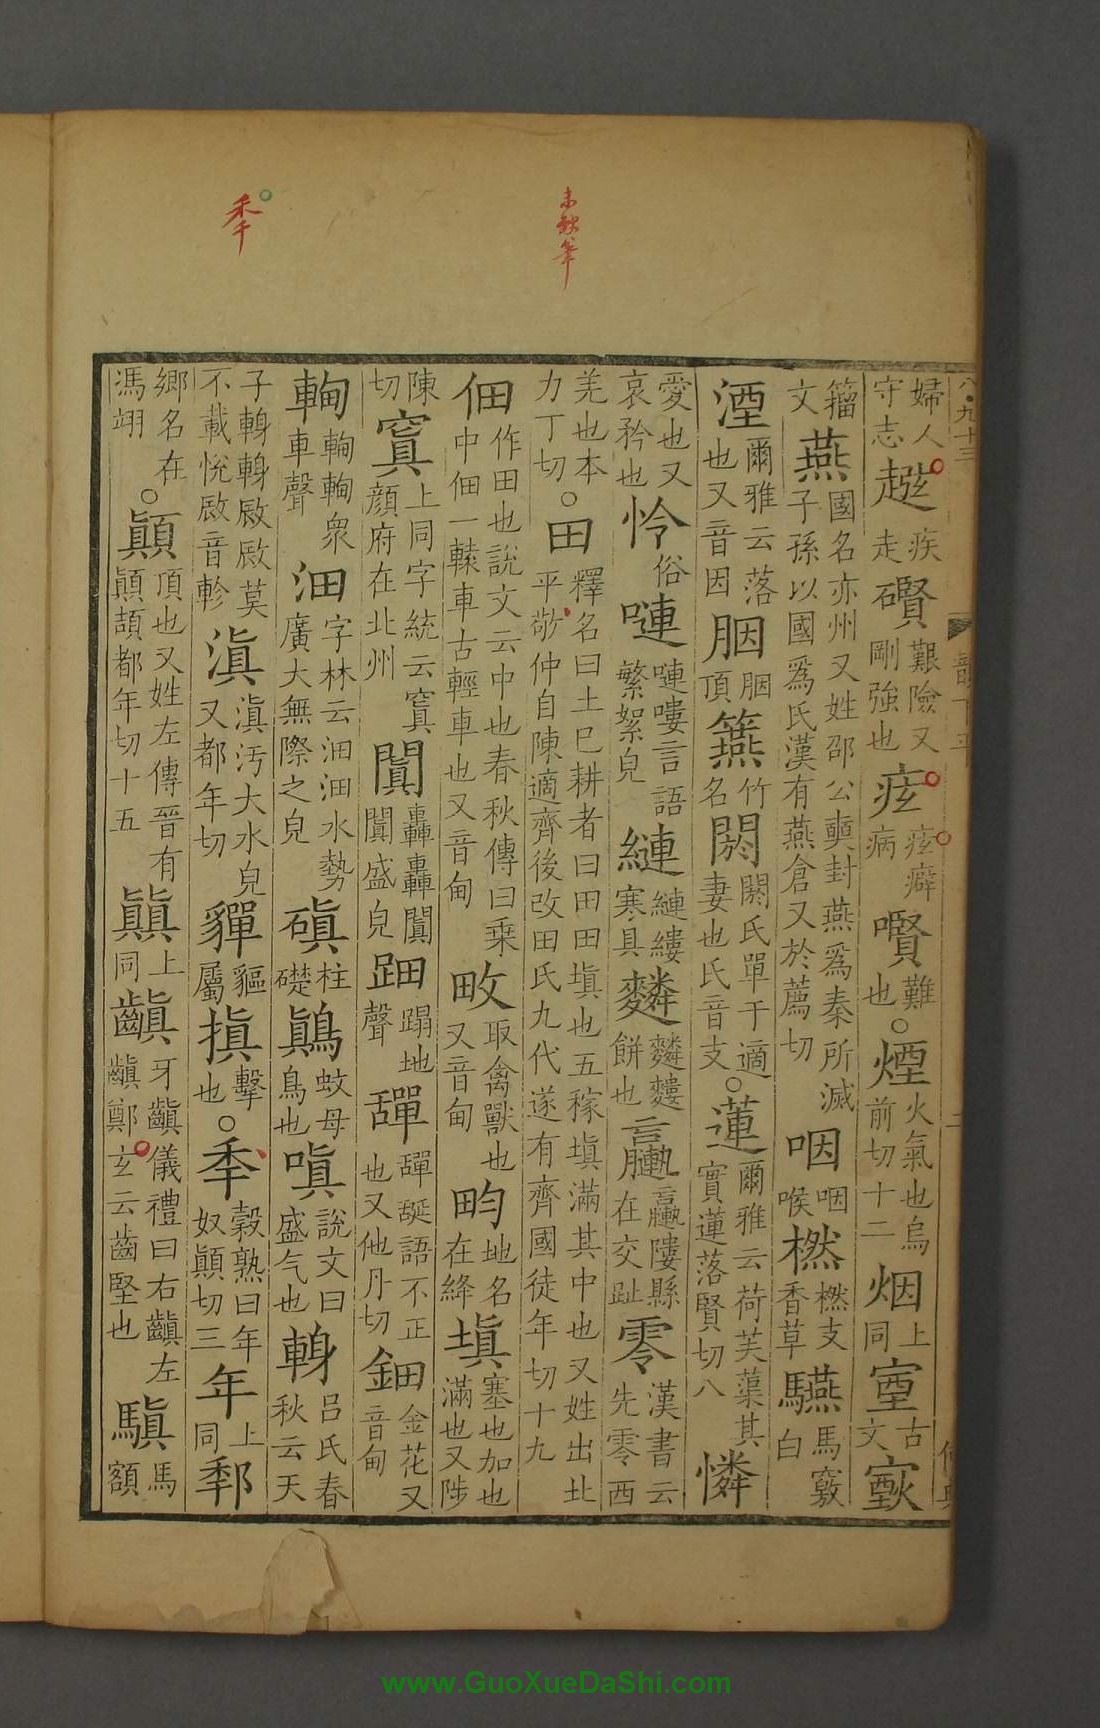 婦人守志趦疾走礥艱險又剛強也痃痃癖病㘋難也○煙火氣也烏前切十二烟上同窒古文㷑
籒文燕國名亦州又姓邵公奭封燕爲秦所滅子孫以國爲氏漢有燕倉又於薦切咽咽喉橪橪支香草驠馬竅白
湮爾雅云落也又音因胭胭頂䴏竹名閼閼氏單于適妻也氏音支○蓮爾雅云荷芙蕖其實蓮落賢切八憐
愛也又哀矜也怜俗嗹嗹嘍言語繁絮皃縺縺縷寒具䴶䴶䴷餅也𧮰𧮰𨻻縣在交趾零漢書云先零西
羌也本力丁切○田釋名曰土巳耕者曰田田填也五稼填滿其中也又姓出北平敬仲自陳適齊後改田氏九代遂有齊國徒年切十九
佃作田也說文云中也春秋傳曰乘中佃一轅車古輕車也又音甸畋取禽獸也又音甸畇地名在絳填塞也加也滿也又陟
陳切窴上同字統云窴顔府在北州闐轟轟闐闐盛皃𨁈蹋地聲𧬊𧬊䛄語不正也又他丹切鈿金花又音甸
輷輷輷衆車聲沺字林云沺沺水勢廣大無際之皃磌柱礎鷏蚊母鳥也嗔說文曰盛气也䡩呂氏春秋云天
子䡩䡩𣪠𣪠莫不載悅𣪠音軫滇滇汚大水皃又都年切貚貙屬搷擊也○秊穀熟曰年奴顛切三年上同郼
鄉名在馮翊○顚頂也又姓左傳晉有顚頡都年切十五顛上同齻牙齻儀禮曰右齻左齻鄭玄云齒堅也驥馬額
未缺筆
秊
www.GuoXueDaShi.com